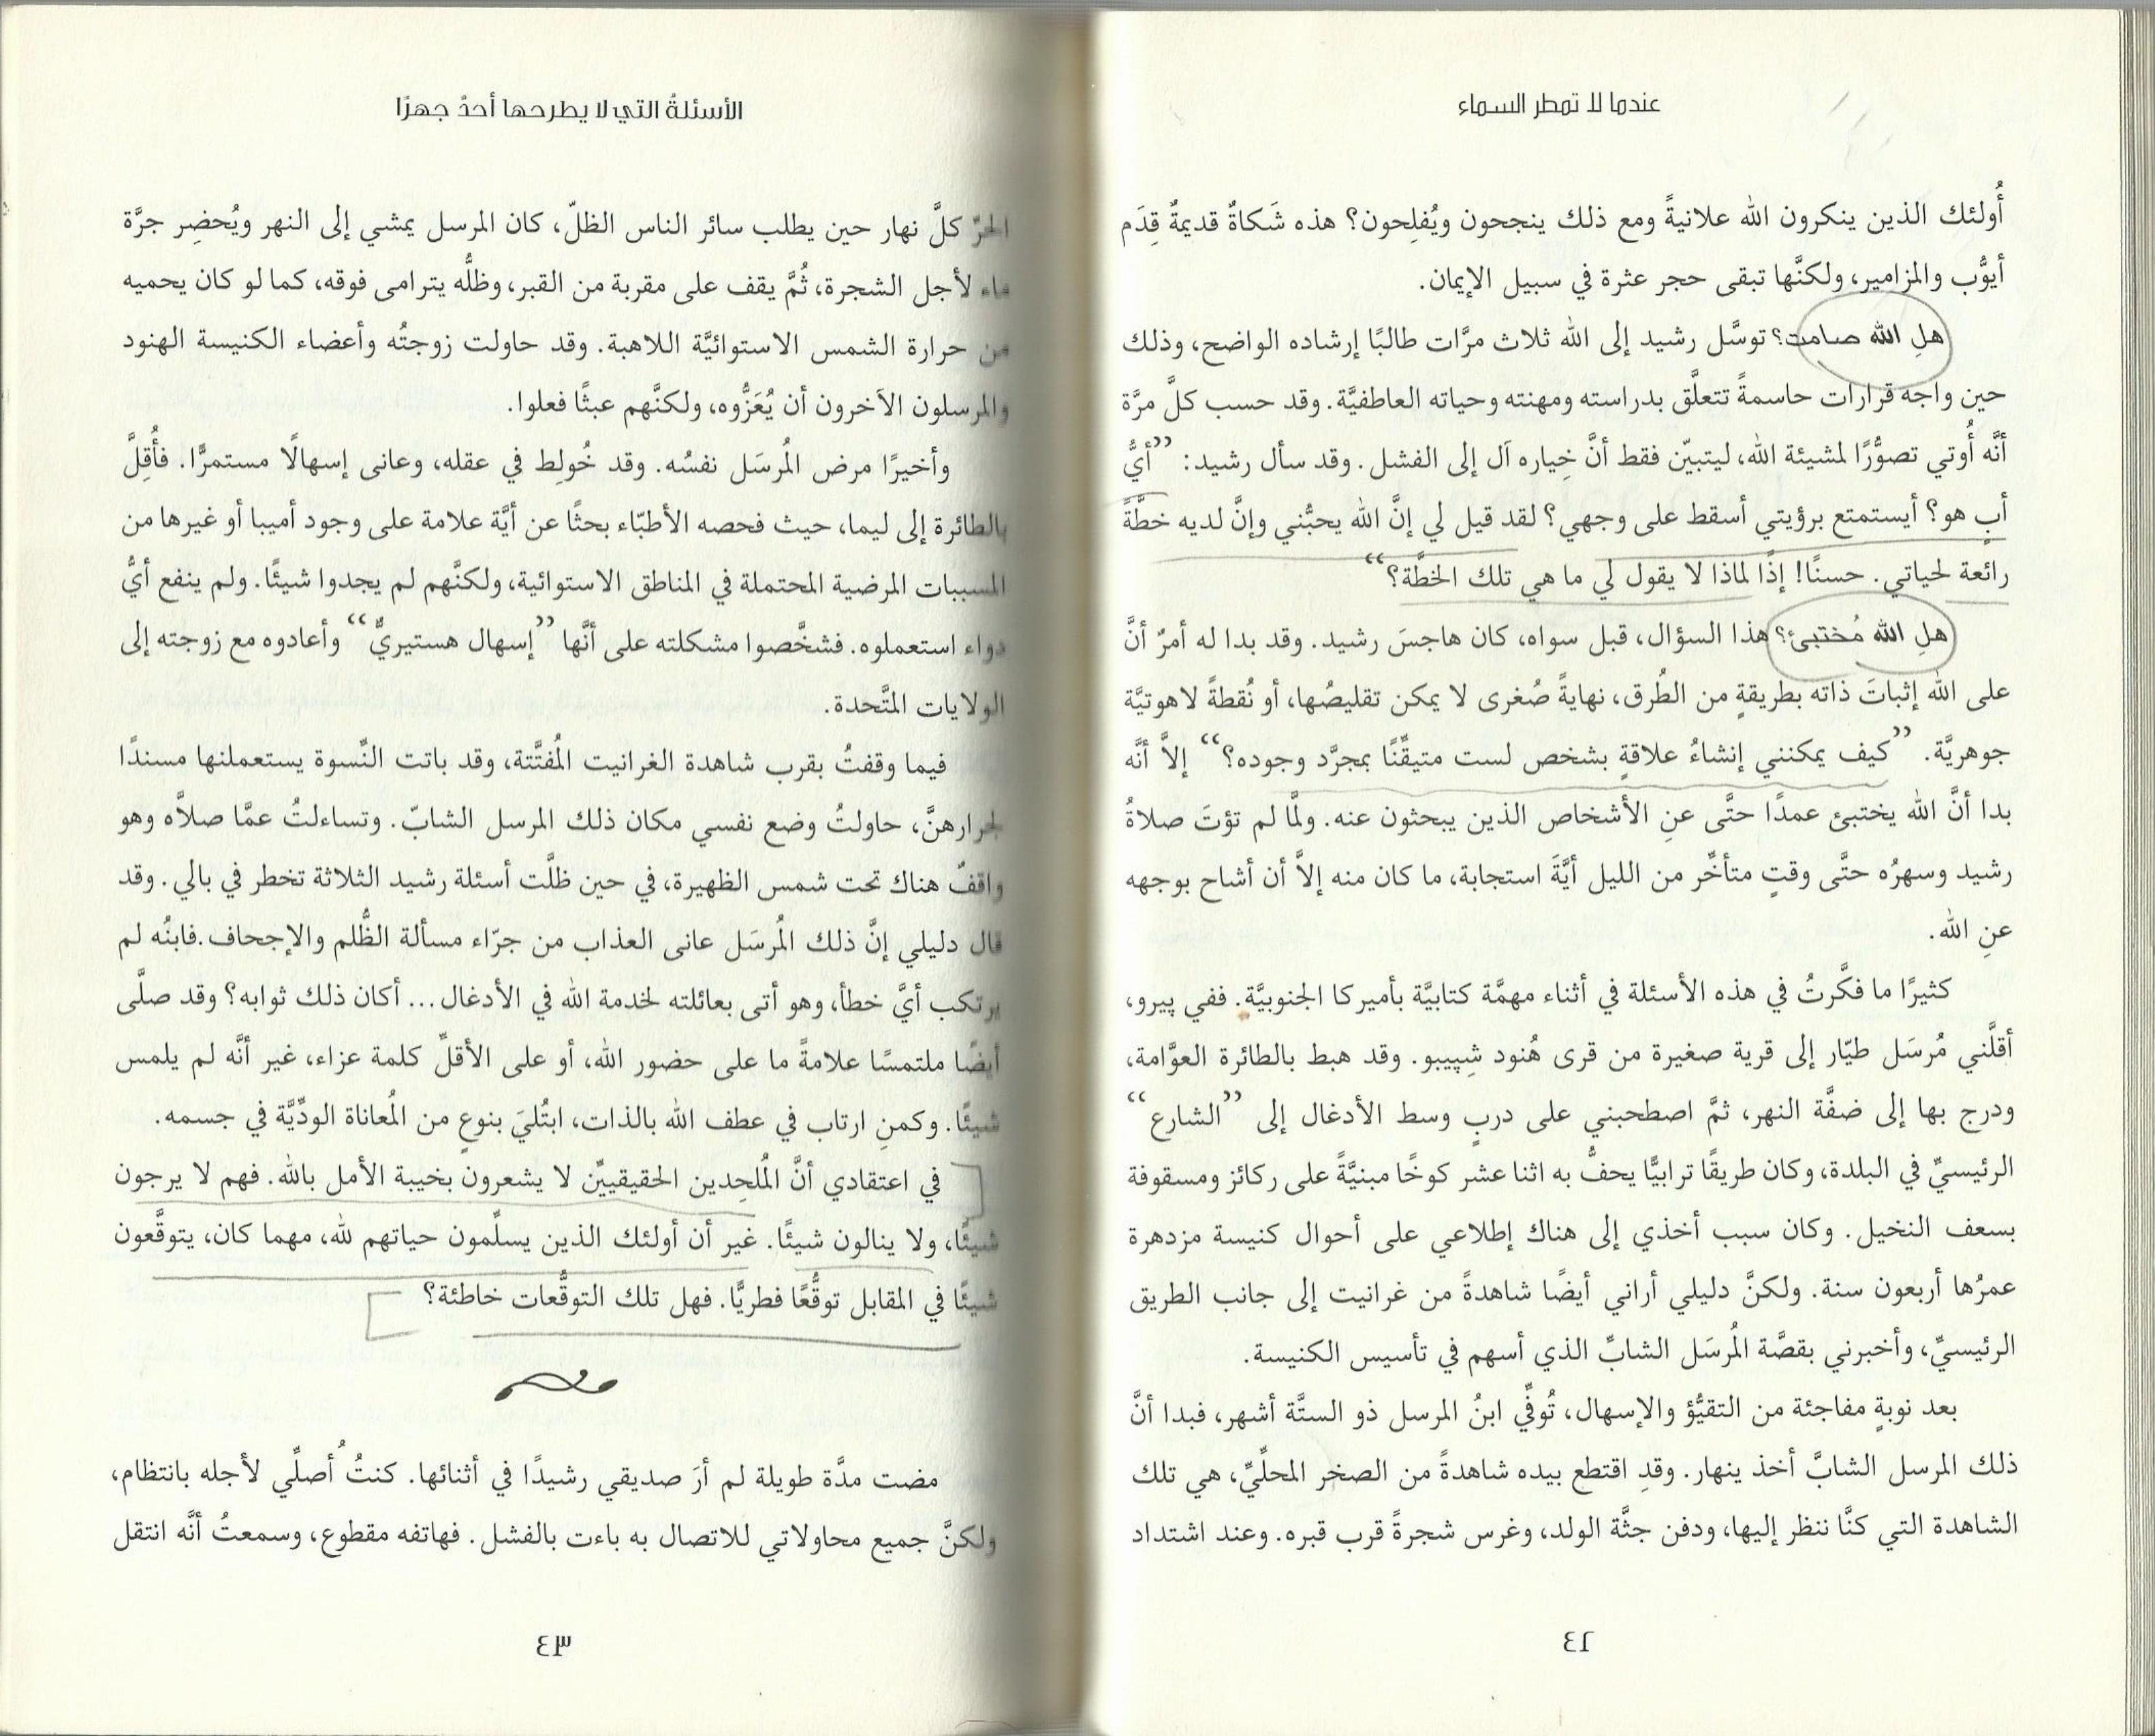 عندما لا تمطر السماء
أُولئك الذين ينكرون الله علانيةً ومع ذلك ينجحون ويُفلِحون؟ هذه شَكاةٌ قديمةٌ قِدَم
أيوُّب والمزامير، ولكنَّها تبقى حجر عثرة في سبيل الإيمان.
هلِ الله صامت؟ توسَّل رشيد إلى الله ثلاث مرَّات طالبًا إرشاده الواضح، وذلك
حين واجه قرارات حاسمةً تتعلَّق بدراسته ومهنته وحياته العاطفيَّة. وقد حسب كلَّ مرَّة
أنَّه أُوتي تصوُّرًا لمشيئة الله، ليتبيّن فقط أنَّ خِياره آل إلى الفشل. وقد سأل رشيد: ”أيُّ
أبٍ هو؟ أيستمتع برؤيتي أسقط على وجهي؟ لقد قيل لي إنَّ الله يحبُّني وإنَّ لديه خطَّةً
رائعة لحياتي. حسنًا! إذًا لماذا لا يقول لي ما هي تلك الخطَّة؟“
هلِ الله مُختبئ؟ هذا السؤال، قبل سواه، كان هاجسَ رشيد. وقد بدا له أمرٌ أنَّ
على الله إثباتَ ذاته بطريقةٍ من الطُرق، نهايةً صُغرى لا يمكن تقليصُها، أو نُقطةً لاهوتيَّة
جوهريَّة. ”كيف يمكنني إنشاءُ علاقةٍ بشخص لست متيقّنًا بمجرَّد وجوده؟“ إلاَّ أنَّه
بدا أنَّ الله يختبئ عمدًا حتَّى عنِ الأشخاص الذين يبحثون عنه. ولمَّا لم تؤتَ صلاةُ
رشيد وسهرُه حتَّى وقتٍ متأخّر من الليل أيَّةَ استجابة، ما كان منه إلاَّ أن أشاح بوجهه
عنِ الله.
كثيرًا ما فكَّرتُ في هذه الأسئلة في أثناء مهمَّة كتابيَّة بأميركا الجنوبيَّة. ففي پيرو،
أقلَّني مُرسَل طيّار إلى قرية صغيرة من قرى هُنود شِپيبو. وقد هبط بالطائرة العوَّامة،
ودرج بها إلى ضفَّة النهر، ثمَّ اصطحبني على دربٍ وسط الأدغال إلى ”الشارع“
الرئيسيِّ في البلدة، وكان طريقًا ترابيًّا يحفُّ به اثنا عشر كوخًا مبنيَّةً على ركائز ومسقوفة
بسعف النخيل. وكان سبب أخذي إلى هناك إطلاعي على أحوال كنيسة مزدهرة
عمرُها أربعون سنة. ولكنَّ دليلي أراني أيضًا شاهدةً من غرانيت إلى جانب الطريق
الرئيسيِّ، وأخبرني بقصَّة المُرسَل الشابِّ الذي أسهم في تأسيس الكنيسة.
بعد نوبةٍ مفاجئة من التقيُّؤ والإسهال، تُوفِّي ابنُ المرسل ذو الستَّة أشهر، فبدا أنَّ
ذلك المرسل الشابَّ أخذ ينهار. وقدِ اقتطع بيده شاهدةً من الصخر المحلّيِّ، هي تلك
الشاهدة التي كنَّا ننظر إليها، ودفن جثَّة الولد، وغرس شجرةً قرب قبره. وعند اشتداد
٤٢
الأسئلةُ التي لا يطرحها أحدٌ جهرًا
الحرّ كلَّ نهار حين يطلب سائر الناس الظلّ، كان المرسل يمشي إلى النهر ويُحضِر جرَّة
ماء لأجل الشجرة، ثُمَّ يقف على مقربة من القبر، وظلُّه يترامى فوقه، كما لو كان يحميه
من حرارة الشمس الاستوائيَّة اللاهبة. وقد حاولت زوجتُه وأعضاء الكنيسة الهنود
والمرسلون الآخرون أن يُعَزُّوه، ولكنَّهم عبثًا فعلوا.
وأخيرًا مرض المُرسَل نفسُه. وقد خُولِط في عقله، وعانى إسهالًا مستمرًّا. فأُقِلَّ
بالطائرة إلى ليما، حيث فحصه الأطبّاء بحثًا عن أيَّة علامة على وجود أميبا أو غيرها من
المسببات المرضية المحتملة في المناطق الاستوائية، ولكنَّهم لم يجدوا شيئًا. ولم ينفع أيُّ
دواء استعملوه. فشخَّصوا مشكلته على أنَّها ”إسهال هستيريٌّ“ وأعادوه مع زوجته إلى
الولايات المتَّحدة.
فيما وقفتُ بقرب شاهدة الغرانيت المُفتَّتة، وقد باتت النِّسوة يستعملنها مسندًا
لجرارهنَّ، حاولتُ وضع نفسي مكان ذلك المرسل الشابّ. وتساءلتُ عمَّا صلاَّه وهو
واقفٌ هناك تحت شمس الظهيرة، في حين ظلَّت أسئلة رشيد الثلاثة تخطر في بالي. وقد
قال دليلي إنَّ ذلك المُرسَل عانى العذاب من جرّاء مسألة الظُّلم والإجحاف.فابنُه لم
يرتكب أيَّ خطأ، وهو أتى بعائلته لخدمة الله في الأدغال... أكان ذلك ثوابه؟ وقد صلَّى
أيضًا ملتمسًا علامةً ما على حضور الله، أو على الأقلِّ كلمة عزاء، غير أنَّه لم يلمس
شيئًا. وكمنِ ارتاب في عطف الله بالذات، ابتُليَ بنوعٍ من المُعاناة الودِّيَّة في جسمه.
في اعتقادي أنَّ المُلحِدين الحقيقييِّن لا يشعرون بخيبة الأمل بالله. فهم لا يرجون
شيئًا، ولا ينالون شيئًا. غير أن أولئك الذين يسلِّمون حياتهم لله، مهما كان، يتوقَّعون
شيئًا في المقابل توقُّعًا فطريًّا. فهل تلك التوقُّعات خاطئة؟
مضت مدَّة طويلة لم أرَ صديقي رشيدًا في أثنائها. كنتُ أُصلِّي لأجله بانتظام،
ولكنَّ جميع محاولاتي للاتصال به باءت بالفشل. فهاتفه مقطوع، وسمعتُ أنَّه انتقل
٤٣